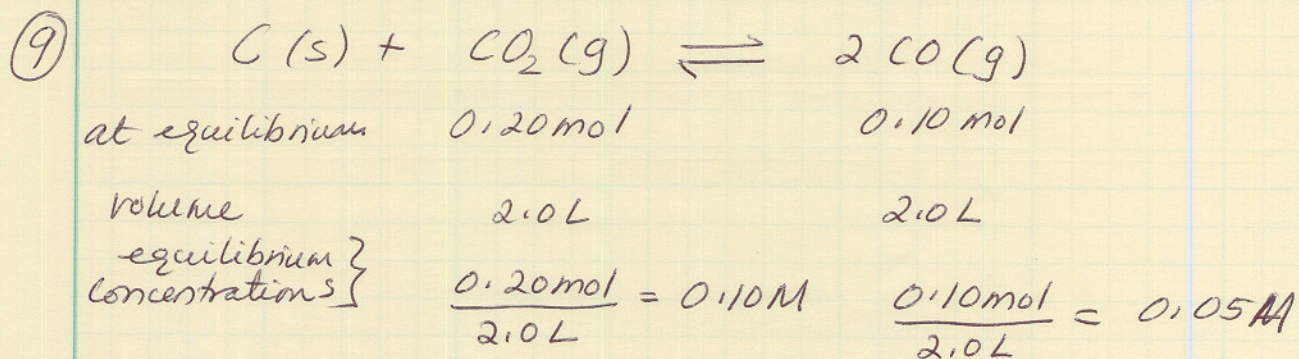 9 C (s) + CO₂ (g) ⇌ 2 CO (g)
at equilibrium 0.20 mol 0.10 mol
volume 2.0 L 2.0 L
equilibrium }
concentrations 0.20 mol / 2.0 L = 0.10 M 0.10 mol / 2.0 L = 0.05 M